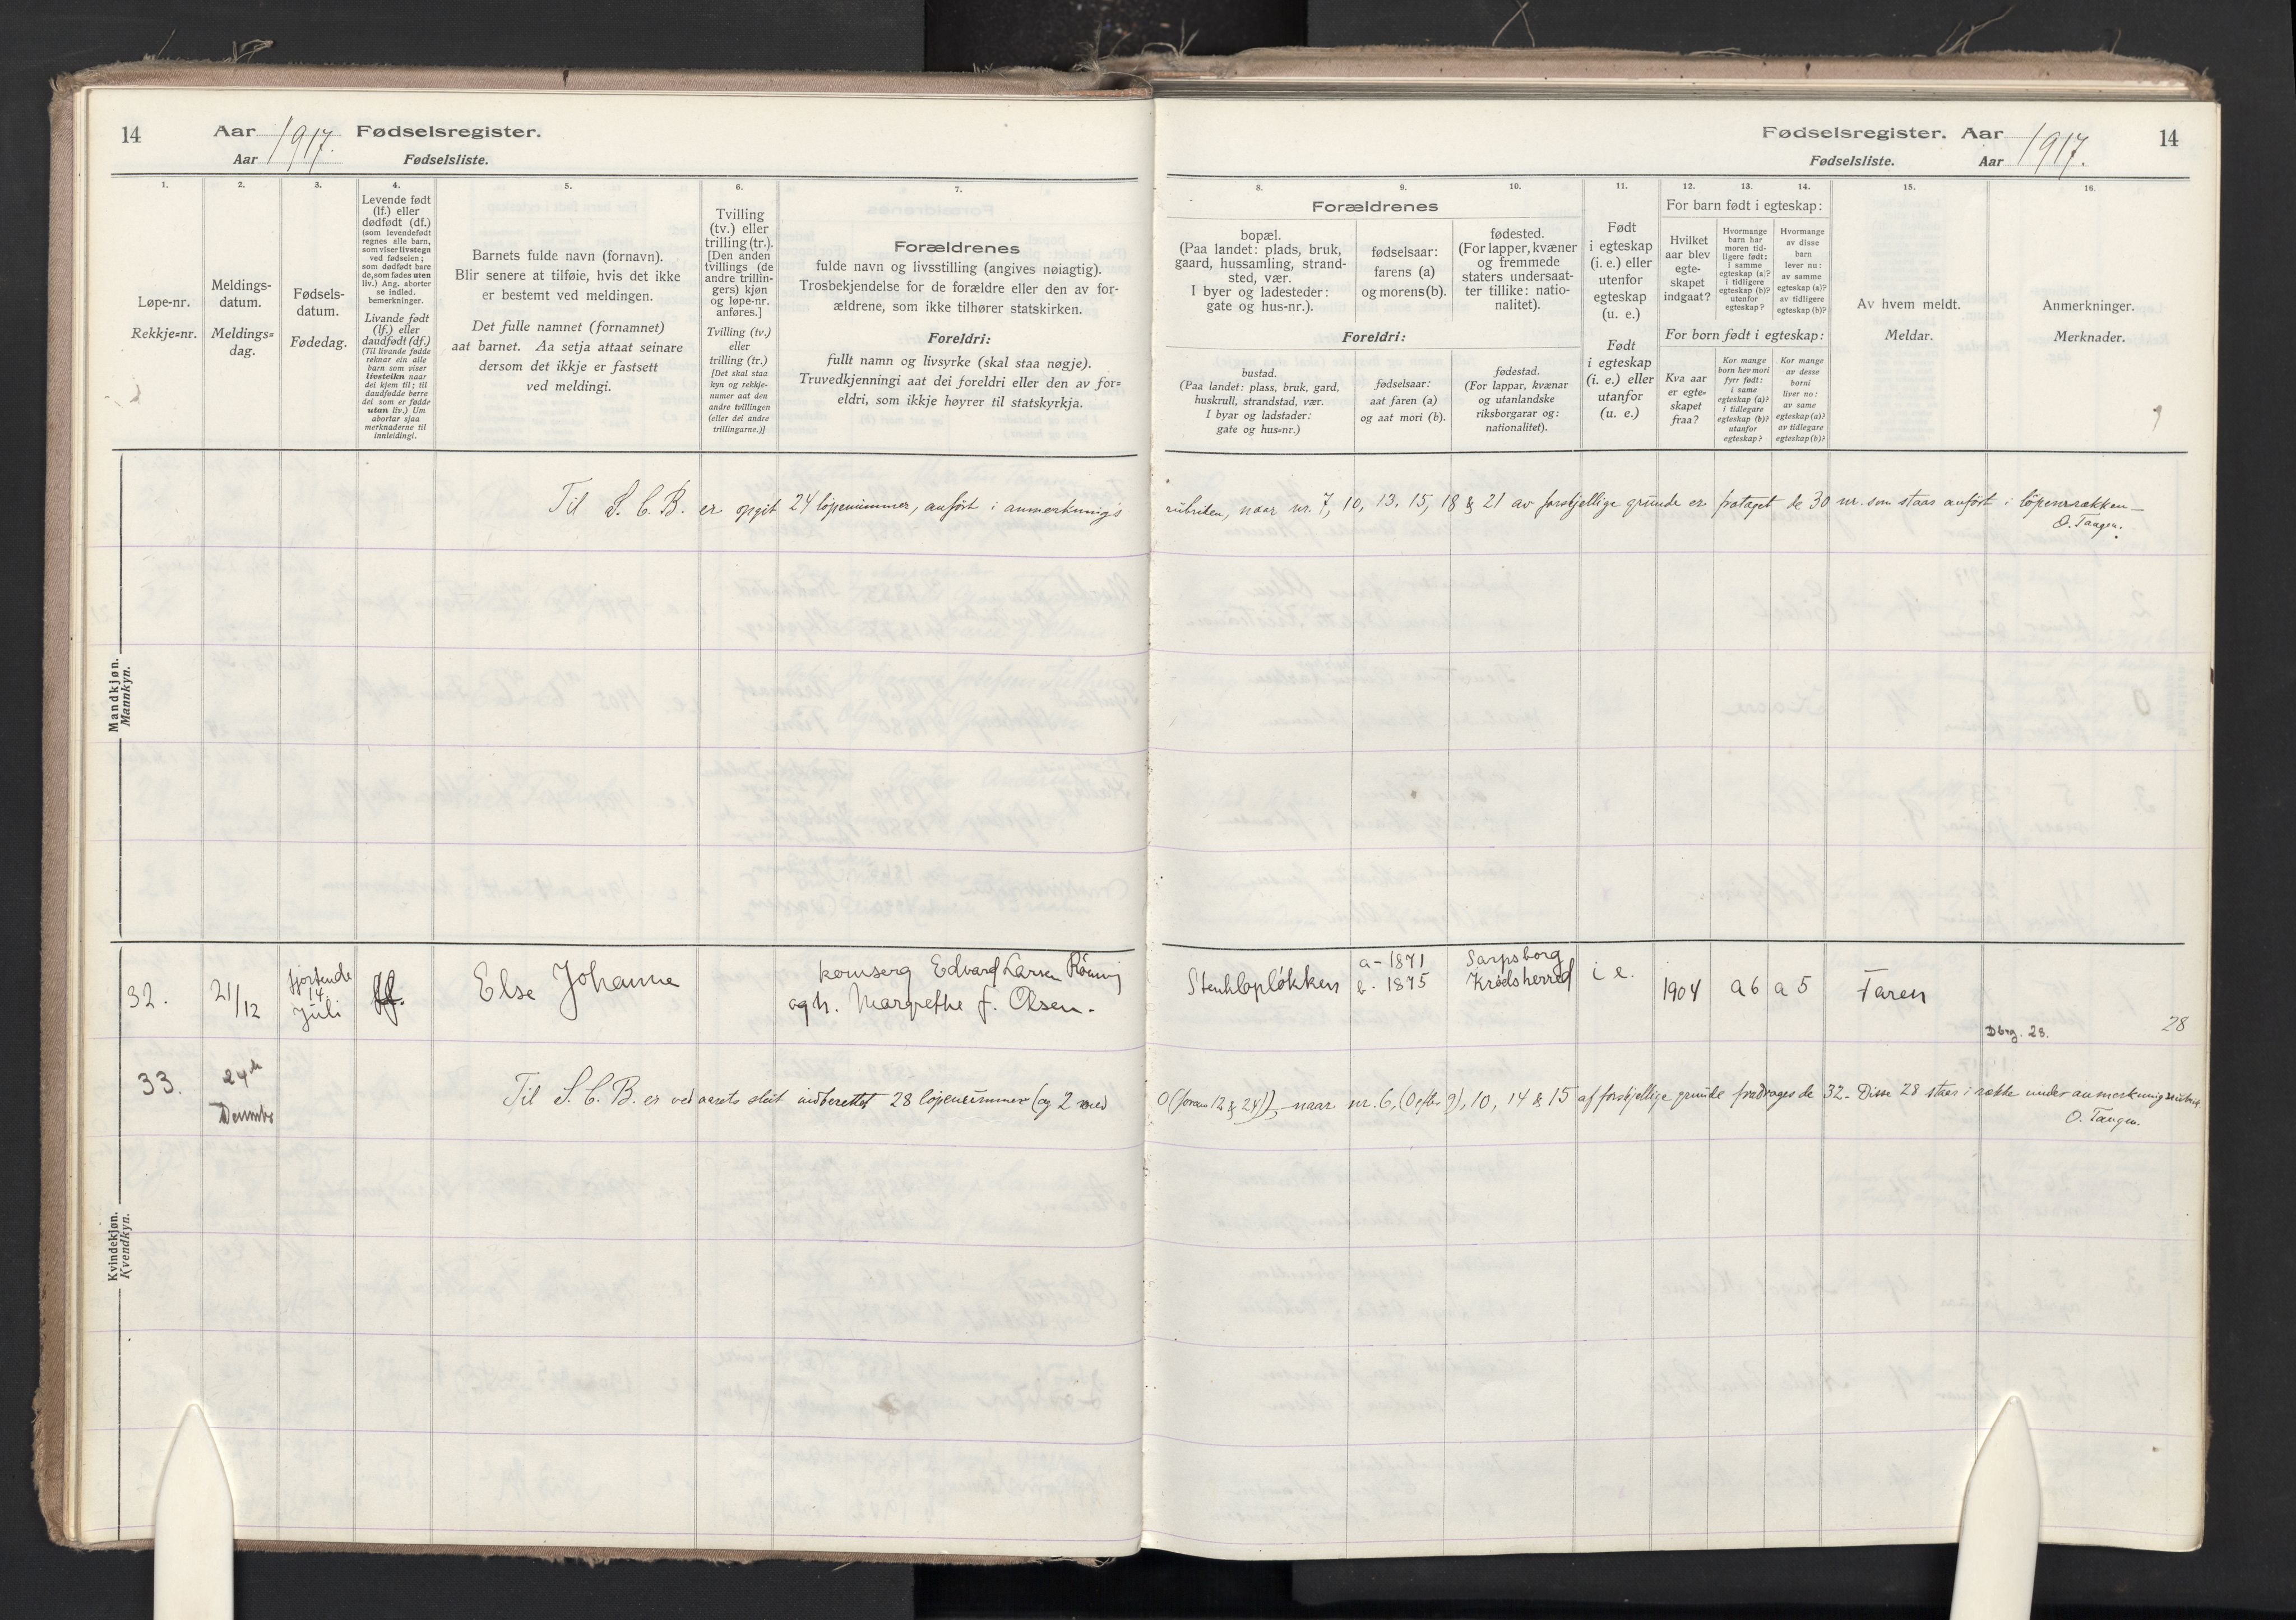 14
Aar 1917. Fødselsregister.
Aar Fødselsliste.
Fødselsregister. Aar 1917.
Fødselsliste. Aar
14
1.
Løpe-nr.
Rekkje=nr.
2.
Meldings-
datum.
Meldings=
dag.
3.
Fødsels-
datum.
Fødedag.
4.
Levende født
(lf.) eller
dødfødt (df.)
(som levendefødt
regnes alle barn,
som viser livstegn
ved fødselen;
som dødfødt bare
de, som fødes uten
liv.) Ang. aborter
se indled.
bemerkninger.
Livande født
(lf.) eller
daudfødt (df.)
(Til livande fødde
reknar ein alle
barn som viser
livsteikn naar
dei kjem til; til
daudfødde berre
dei som er fødde
utan liv.) Um
abortar sjaa
merknaderne til
innleidingi.
5.
Barnets fulde navn (fornavn).
Blir senere at tilføie, hvis det ikke
er bestemt ved meldingen.
Det fulle namnet (fornamnet)
aat barnet. Aa setja attaat seinare
dersom det ikkje er fastsett
ved meldingi.
6.
Tvilling
(tv.) eller
trilling (tr.).
[Den anden
tvillings (de
andre trillin-
gers) kjøn
og løpe-nr.
anføres.]
Tvilling (tv.)
eller
trilling (tr.)
[Det skal staa
kyn og rekkje-
numer aat den
andre tvillingen
(eller dei andre
trillingarne.)]
7.
Forældrenes
fulde navn og livsstilling (angives nøiagtig).
Trosbekjendelse for de forældre eller den av for-
ældrene, som ikke tilhører statskirken.
Foreldri:
fullt namn og livsyrke (skal staa nøgje).
Truvedkjenningi aat dei foreldri eller den av for=
eldri, som ikkje høyrer til statskyrkja.
Forældrenes
8.
bopæl.
(Paa landet: plads, bruk,
gaard, hussamling, strand-
sted, vær.
I byer og ladesteder:
gate og hus-nr.).
9.
fødselsaar:
farens (a)
og morens (b).
10.
fødested.
(For lapper, kvæner
og fremmede
staters undersaat-
ter tillike: natio-
nalitet).
Foreldri:
bustad.
(Paa landet: plass, bruk, gard,
huskrull, strandstad, vær.
I byar og ladstader:
gate og hus=nr.)
fødselsaar:
aat faren (a)
og aat mori (b).
fødestad.
(For lappar, kvænar
og utanlandske
riksborgarar og:
nationalitet).
11.
Født
i egteskap
(i. e.) eller
utenfor
egteskap
(u. e.)
Født
i egteskap
(i. e.) eller
utanfor
(u. e.)
For barn født i egteskap:
12.
Hvilket
aar blev
egte-
skapet
indgaat?
13.
Hvormange
barn har
moren tid-
ligere født:
i samme
egteskap (a)?
i tidligere
egteskap (b)?
utenfor
egteskap?
14.
Hvormange
av disse
barn
lever nu:
av samme
egteskap (a)?
av tidligere
egteskap (b)?
For born født i egteskap:
Kva aar
er egte-
skapet
fraa?
Kor mange
born hev mori
fyrr født:
i same
egteskap (a)?
i tidlegare
egteskap (b)?
utanfor
egteskap?
Kor mange
av desse
borni
liver no:
av same
egteskap (a)?
av tidlegare
egteskap (b)?
15.
Av hvem meldt.
Meldar.
16.
Anmerkninger.
Merknader.
Mandkjøn.
Mannkyn.
Til S. C. B. er opgit 24 løpenummer, anført i anmerknings rubriken, naar nr. 7, 10, 13, 15, 18 & 21 av forskjellige grunde er frataget de 30 nr. som staar anført i løpenrrækken—
O. Tangen.
Kvindekjøn.
Kvendkyn.
32. 21/12 fjortende 14 Juli lf. Else Johanne
komserg Edvard Larsen
og h. Margrethe f. Olsen.
Stenhlopløkken a- 1871 b- 1875 Sarpsborg Krødsherred i e. 1904 a 6 a 5 Faren
Dbrg. 28. 28
33. 24de Decembr
Til S. C. B. er ved aarets slut indberettet 28 løpenummer (og 2 med 0 (foran 12 & 24)), naar nr. 6, (0 efter 9), 10, 14 & 15 af forskjellige grunde fradrages de 32. Disse 28 staar i række under anmerkningsrubrik.
O. Tangen.